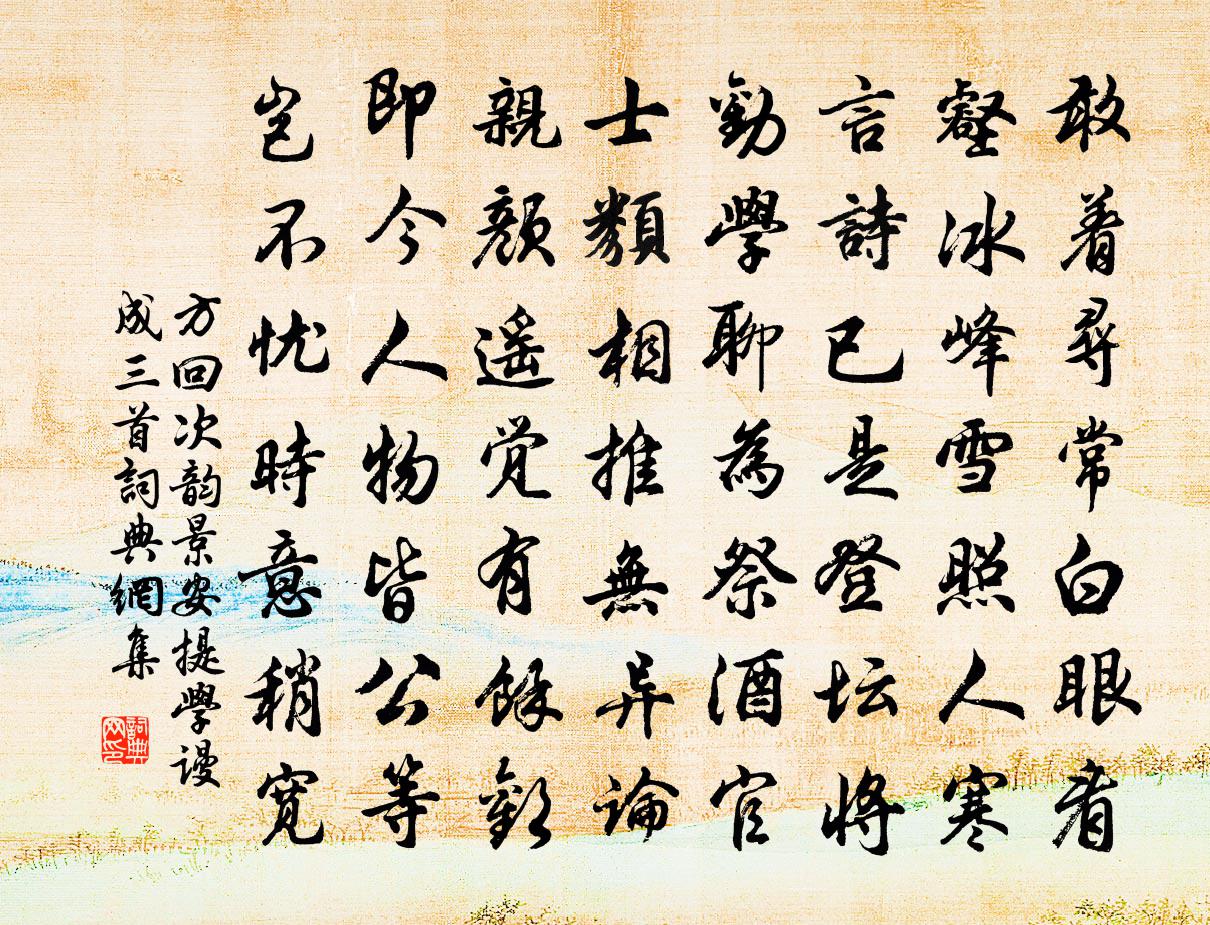 敢着尋常白眼看
壑冰峰雪照人寒
言詩已是登坛將
勸學聊為祭酒官
士類相推無异論
親顔遥觉有餘歡
即今人物皆公等
岂不忧時意稍寬
方回次韵景安提學谩
成三首詞典網集
詞典
网印